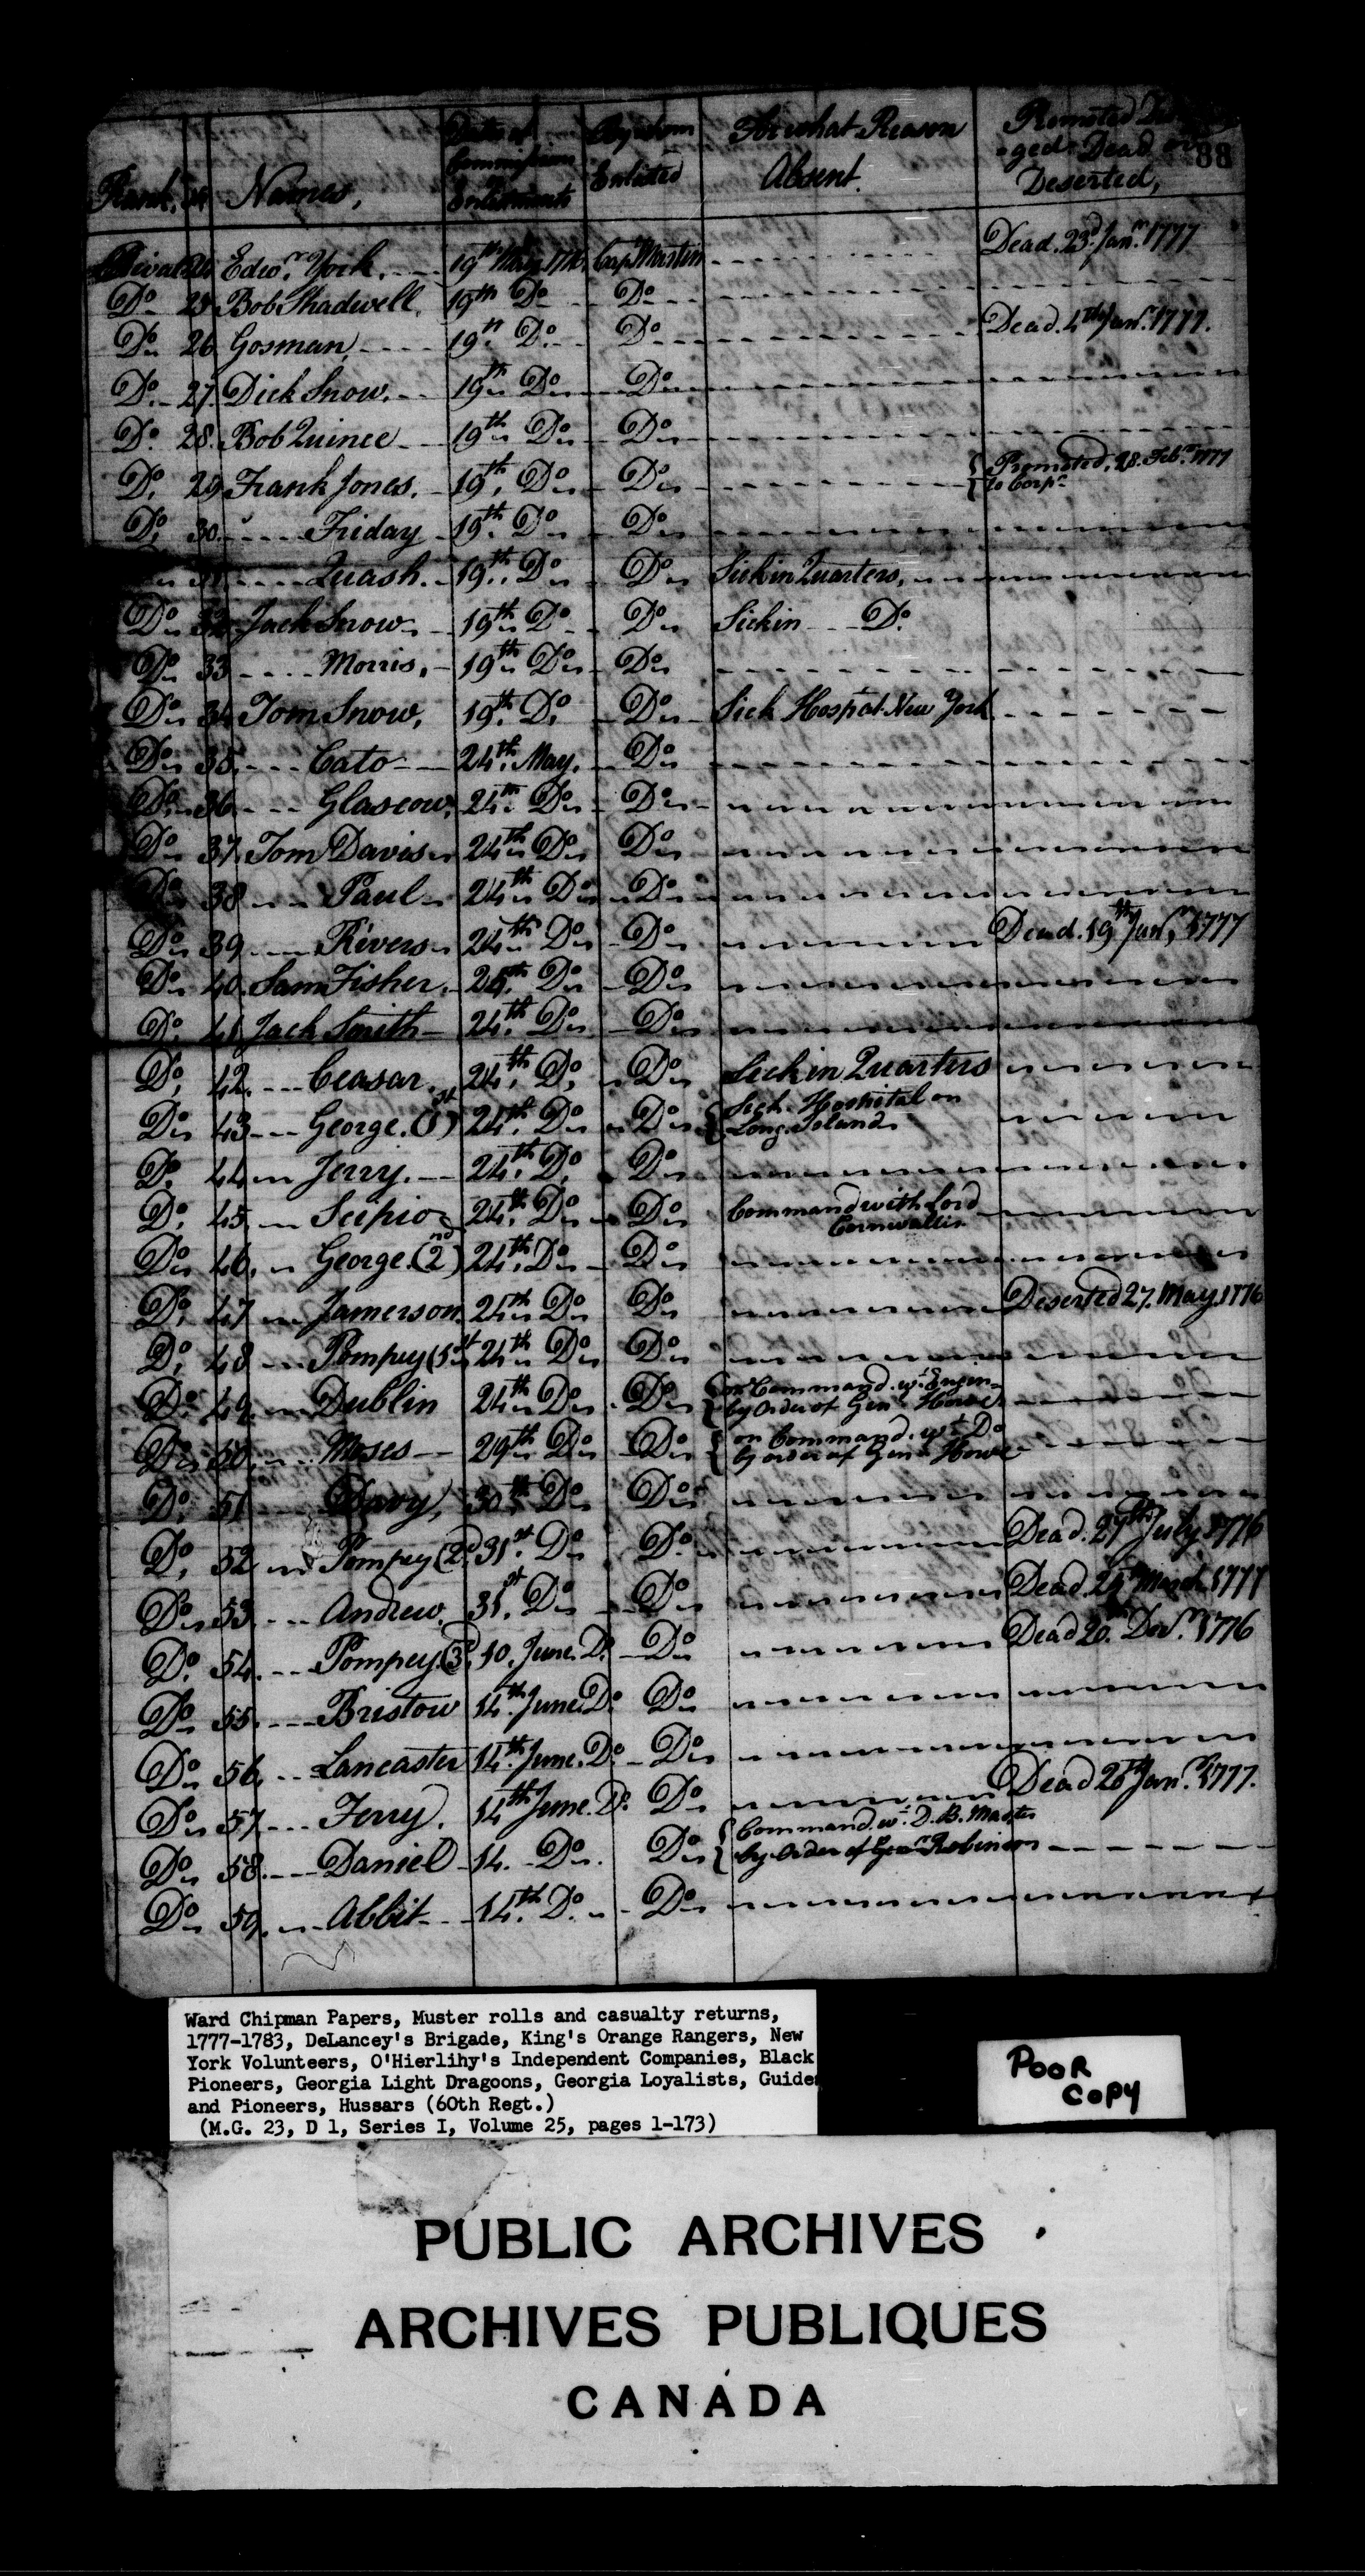 88
Rank. No Names, Dates of Commissions or Enlistments By whom Enlisted For what Reason Absent. Promoted Dis-ged Dead or Deserted,
Private 24 Edwr. York. 19th May 1776 Capt Martin Dead. 23d. Janr. 1777
Do 25 Bob Shadwell, 19th Do Do
Do 26 Gosman, 19th Do Do Dead. 4th Janr. 1777.
Do. 27. Dick Snow. 19th Do Do
Do 28. Bob Quince 19th Do Do
Do. 29 Frank Jones. 19th. Do Do Promoted, 28. Febr. 1777 to Corpl.
Do 30. Friday 19th. Do Do
31 Quash. 19th. Do Do Sick in Quarters,
Do 32 Jack Snow 19th Do Do Sick in Do.
Do 33 Morris. 19th Do Do
Do 34 Tom Snow, 19th. Do. Do Sick Hospat. New York
Do 35. Cato 24th. May. Do
Do 36. Glascow, 24th Do Do
Do 37. Tom Davis 24th Do Do
Do 38 Paul 24th Do Do
Do 39 Rivers 24th Do Do Dead. 19th Janr. 1777
Do 40. Sam Fisher. 24th. Do Do
Do. 41 Jack Smith 24th. Do Do
Do. 42. Ceasar. 24th. Do. Do Sick in Quarters
Do 43 George. (1st) 24th. Do Do Sick. Hospital on
Long. Island.
Do. 44 Jerry. 24th. Do. Do
Do. 45. Scipio 24th. Do Do Command with Lord
Cornwallis
Do 46. George. (2nd) 24th. Do Do
Do. 47 Jamerson. 24th Do Do Deserted 27. May. 1776
Do. 48 Pompey (1st 24th Do Do
Do. 49 Dublin 24th Do Do on Command. wt. Engin-
by Order of Genl. Howe
Do 50. Moses 29th Do Do on Command. wt Do
by order of Genl. Howe
Do. 51 Davy, 30th. Do Do
Do. 52 Pompey (2d 31st. Do Do. Dead. 27th July 1776
Do 53. Andrew. 31st. Do Do Dead. 24th March 1777
Do. 54. Pompey. (3d. 10. June. Do. Do Dead 20th. Decr. 1776
Do 55. Bristow 14th. June. Do. Do
Do 56. Lancaster 14th. June. Do. Do
Do 57. Ferry. 14th June. Do. Do Dead 20th Janr. 1777.
Do 58. Daniel 14. Do. Do Command. wt. D. B. Master
by Order of Genl. Robinson
Do 59. Abbit 14th. Do. Do
Ward Chipman Papers, Muster rolls and casualty returns,
1777-1783, DeLancey's Brigade, King's Orange Rangers, New
York Volunteers, O'Hierlihy's Independent Companies, Black
Pioneers, Georgia Light Dragoons, Georgia Loyalists, Guides
and Pioneers, Hussars (60th Regt.)
(M.G. 23, D 1, Series I, Volume 25, pages 1-173)
POOR
COPY
PUBLIC ARCHIVES
ARCHIVES PUBLIQUES
CANADA